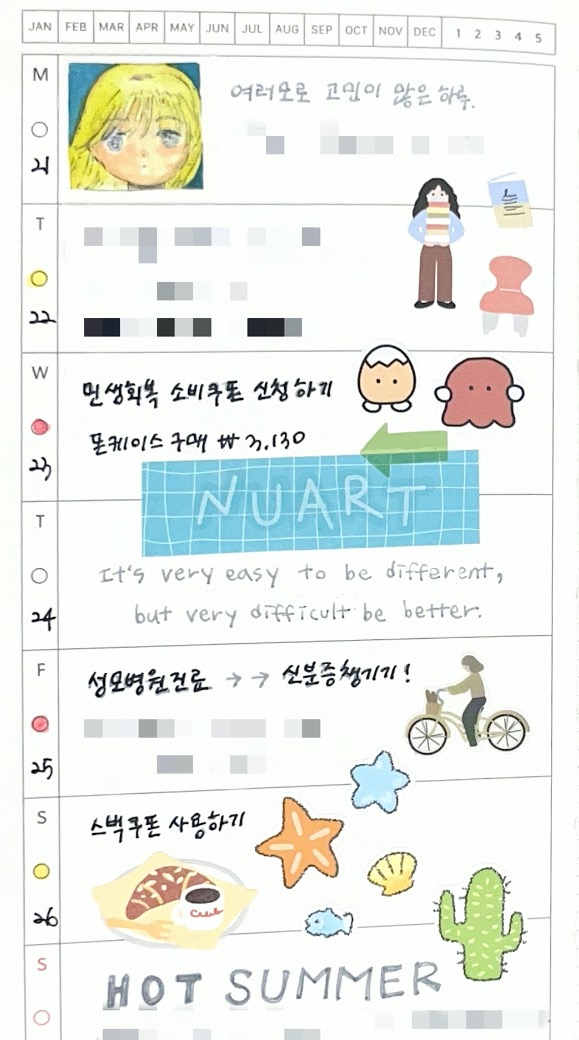 JAN FEB MAR APR MAY JUN JUL AUG SEP OCT NOV DEC 1 2 3 4 5
M
21
여러모로 고민이 많은 하루.
T
22
W
23
민생회복 소비쿠폰 신청하기
폰케이스 구매 ₩ 3,130
NUART
T
24
It's very easy to be different,
but very difficult be better.
F
25
성모병원진료 → → 신분증챙기기!
S
26
스벅쿠폰 사용하기
S
HOT SUMMER